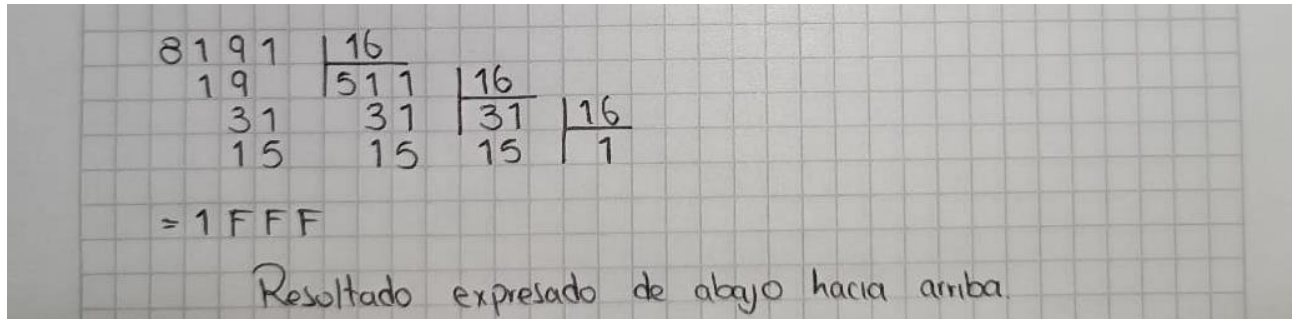 8191 16
19 511 16
31 31 31 16
15 15 15 1
= 1FFF
Resoltado expresado de abajo hacia arriba.